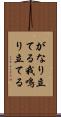 がなり立
てる我鳴
り立てる